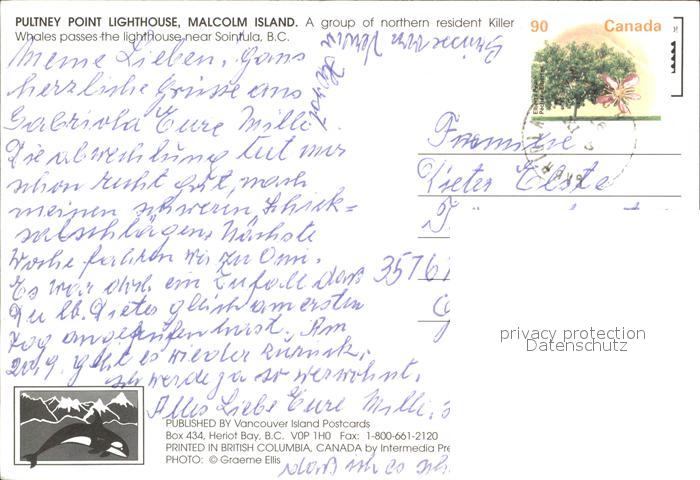 PULTNEY POINT LIGHTHOUSE, MALCOLM ISLAND. A group of northern resident Killer
Whales passes the lighthouse near Sointula, B.C.
Meine Lieben, ganz
herzliche Grüsse aus
Gabriola Eure Milli
Die abwechlung tut mir
schon recht gut, nach
meinen schweren Schick=
salschlägen. Nächste
Woche fahren wir zu Omi.
Es war doch ein Zufall daß
Du lb. Dieter gleich am ersten
Tag angerufen hast. Am
20.9. geht es wieder zurück,
ich werde ja so verwöhnt.
Alles Liebe Eure Milli,
daß ich es
90 Canada
Familie
Dieter Elste
3576
privacy protection
Datenschutz
PUBLISHED BY Vancouver Island Postcards
Box 434, Heriot Bay, B.C. V0P 1H0 Fax: 1-800-661-2120
PRINTED IN BRITISH COLUMBIA, CANADA by Intermedia Pre
PHOTO: © Graeme Ellis